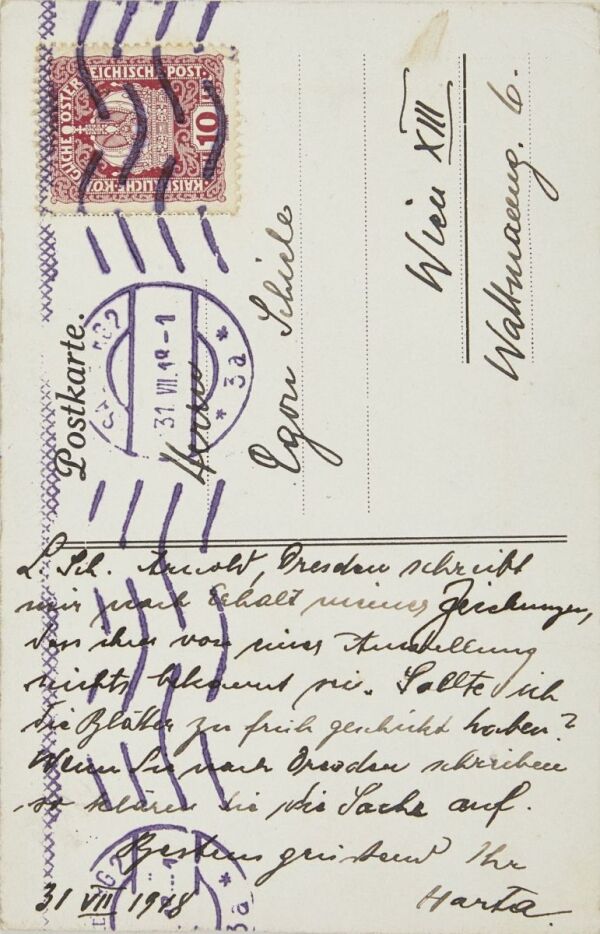 KAISERLICHE KÖNIGLICHE ÖSTERREICHISCHE POST
10
Postkarte.
31. VII. 18-1
* 3a *
Herrn
Egon Schiele
Wien XIII
Wattmanng. 6.
L. Sch. Arnold, Dresden schreibt
mir nach Erhalt meiner Zeichnungen,
dass ihm von einer Ausstellung
nichts bekannt sei. Sollte ich
die Blätter zu früh geschickt haben?
Wenn Sie nach Dresden schreiben
so klären Sie die Sache auf.
Bestens grüssend Ihr
31 VII 1918 Harta.
3a *